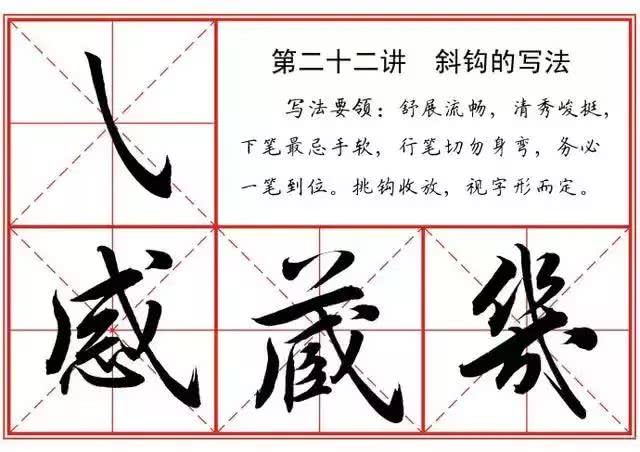 第二十二讲 斜钩的写法
写法要领：舒展流畅，清秀峻挺，
下笔最忌手软，行笔切勿身弯，务必
一笔到位。挑钩收放，视字形而定。
感 藏 幾